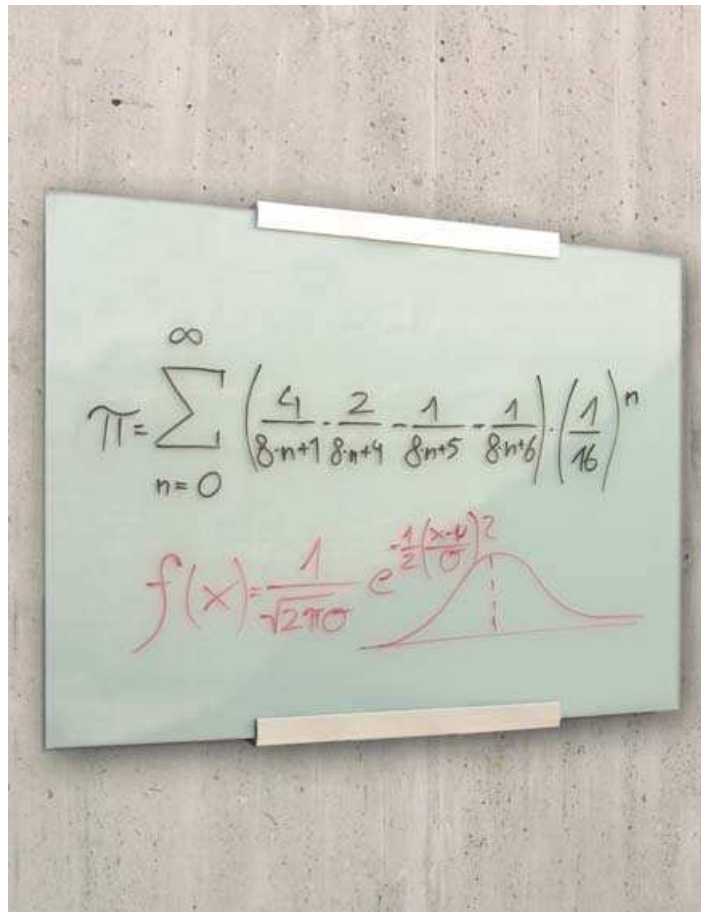 π = ∑_{n=0}^{∞} (4/(8·n+1) - 2/(8·n+4) - 1/(8·n+5) - 1/(8·n+6)) · (1/16)^n
f(x) = 1/√(2πσ) e^{-1/2((x-μ)/σ)^2}